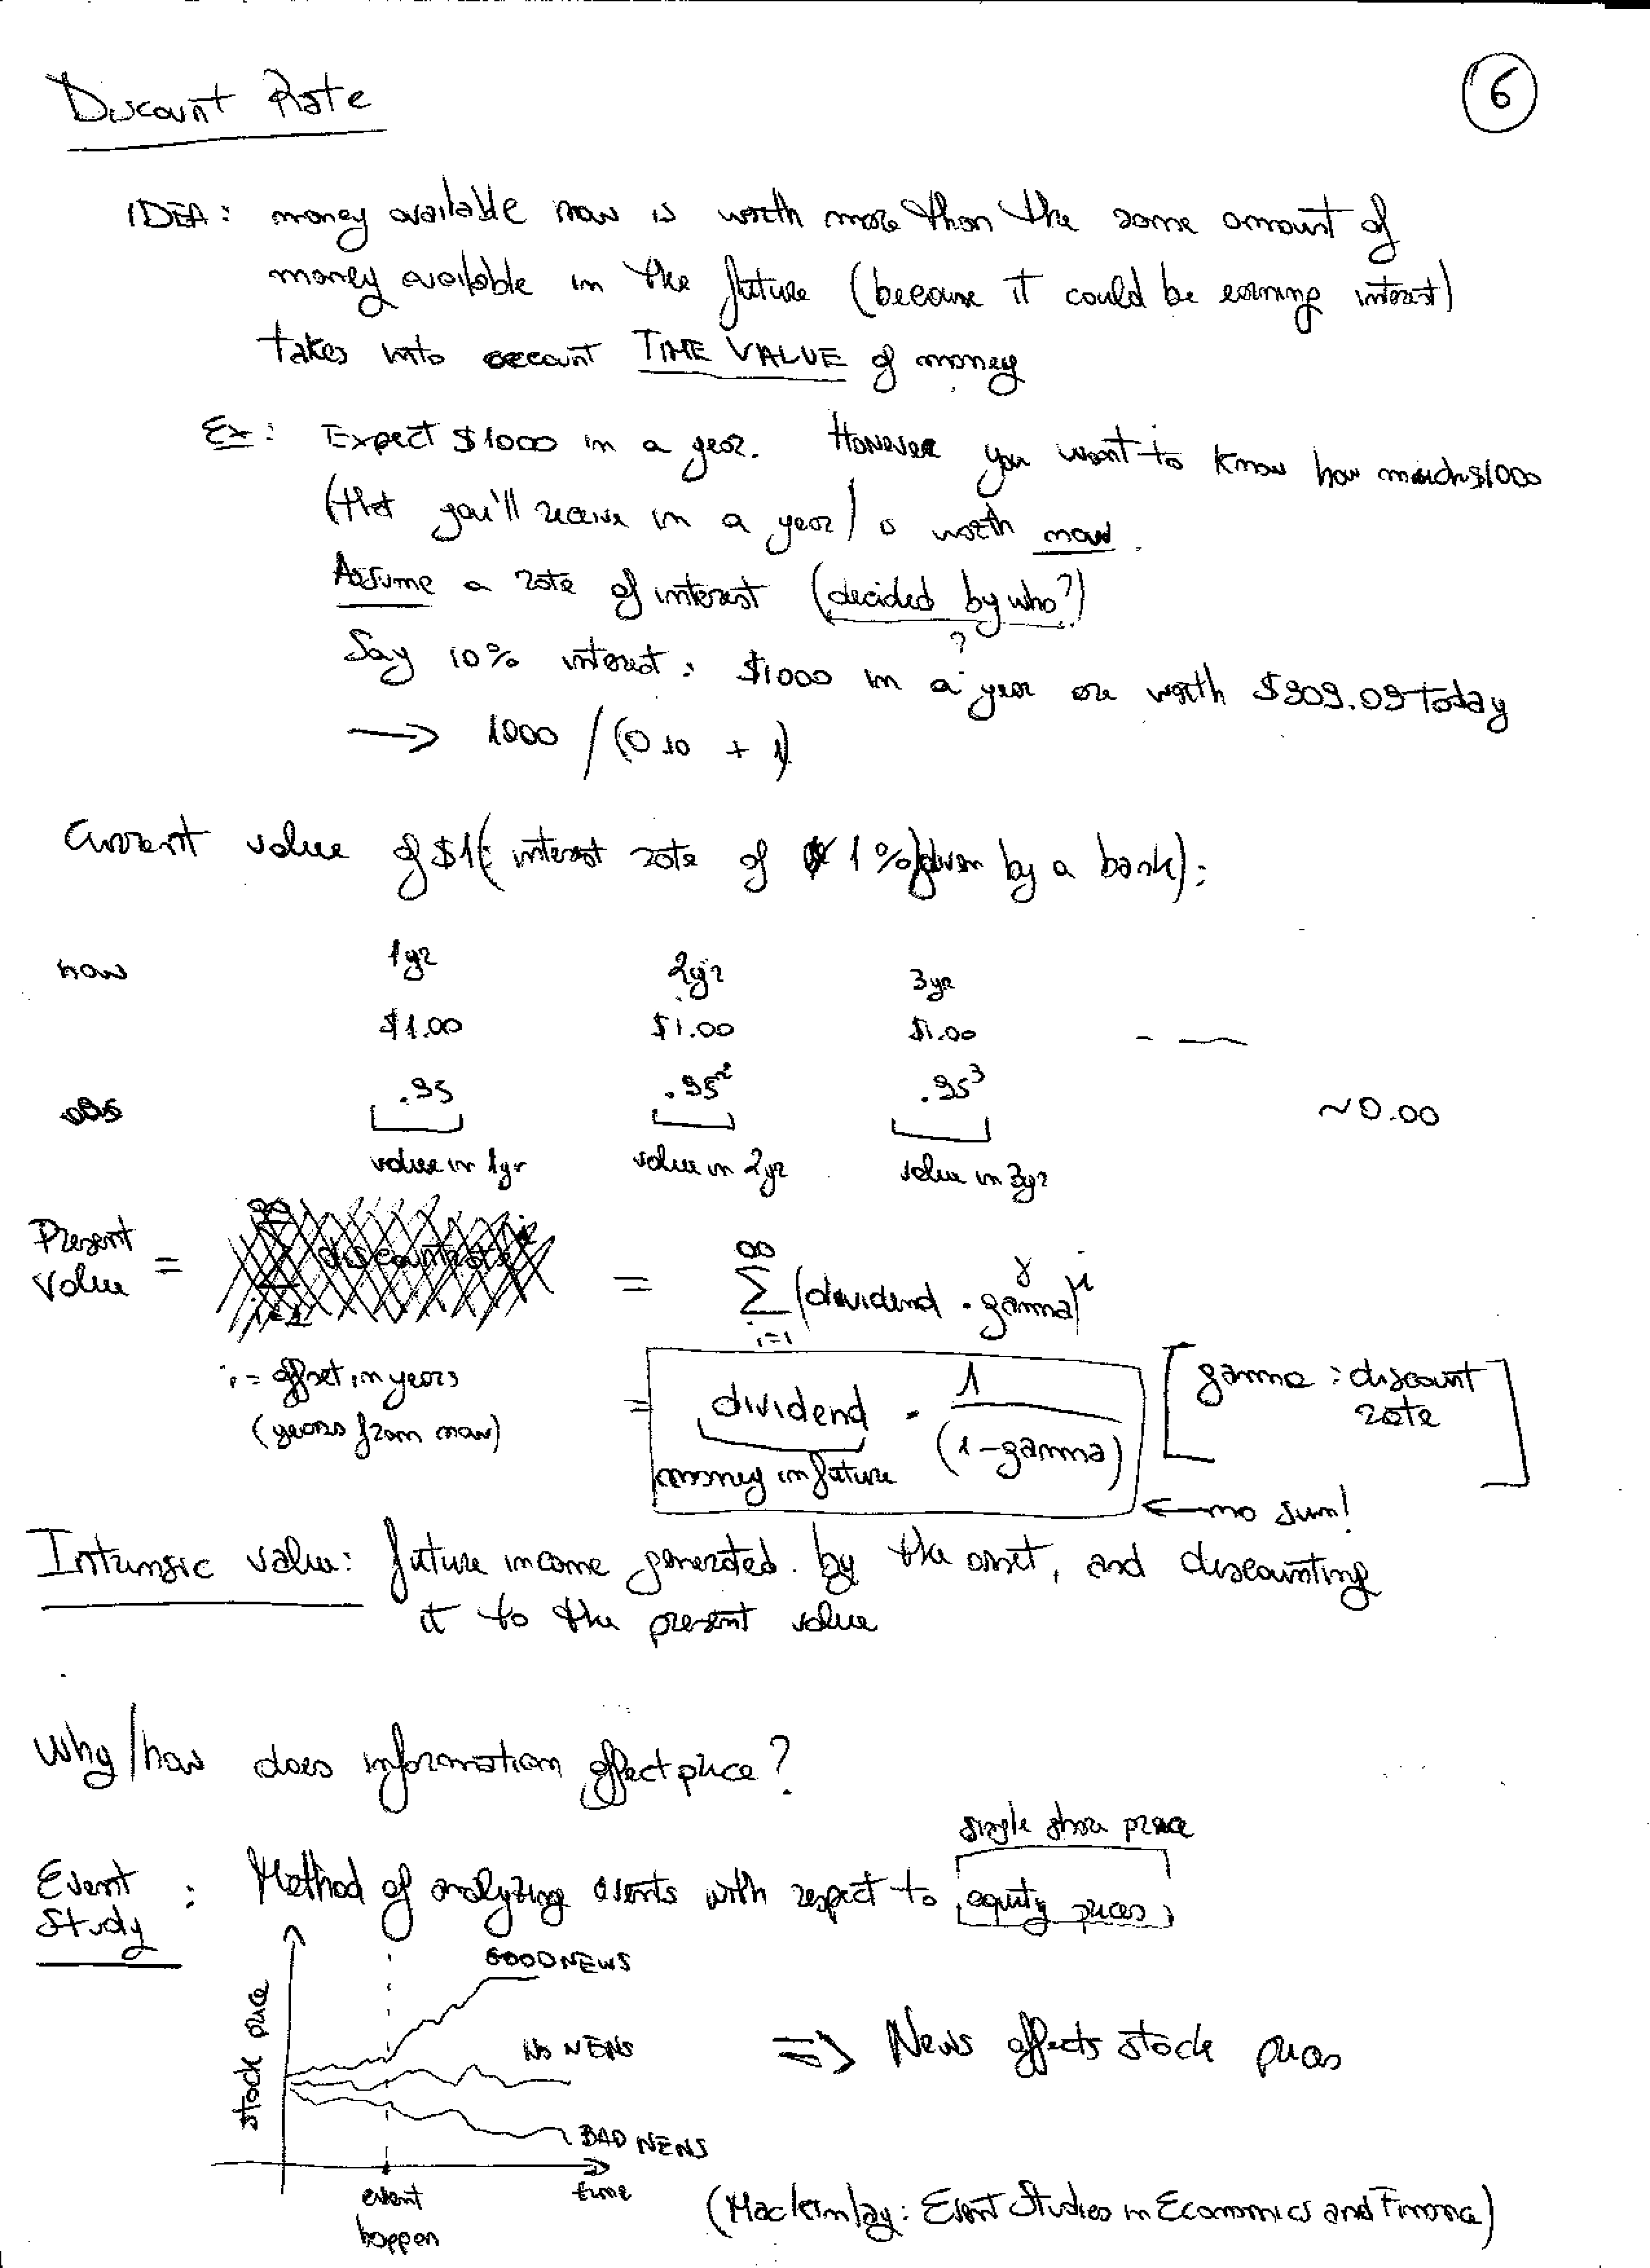 Discount Rate
6
IDEA: money available now is worth more than the same amount of
money available in the future (because it could be earning interest)
takes into account TIME VALUE of money
Ex: Expect $1000 in a year. However you want to know how much $1000
(that you'll receive in a year) is worth now.
Assume a rate of interest (decided by who?)
?
Say 10% interest: $1000 in a year are worth $909.09 today
→ 1000 / (0.10 + 1)
Current value of $1 (interest rate of 1% given by a bank):
now 1yr 2yr 3yr
$1.00 $1.00 $1.00 - —
.95 .95² .95³ ~0.00
value in 1yr value in 2yr value in 3yr
Present
Value = = ∞ Σ i=1 (dividend · gamma)^i
γ
i = offset in years
(years from now)
= dividend · 1 / (1-gamma)
money in future
[gamma: discount
rate]
← no sum!
Intrinsic value: future income generated by the asset, and discounting
it to the present value
Why/how does information affect price?
single share price
Event
Study : Method of analyzing events with respect to equity prices
GOOD NEWS
stock price
NO NEWS
⇒ News affects stock prices
BAD NEWS
event
happen
time
(Mackinlay: Event Studies in Economics and Finance)